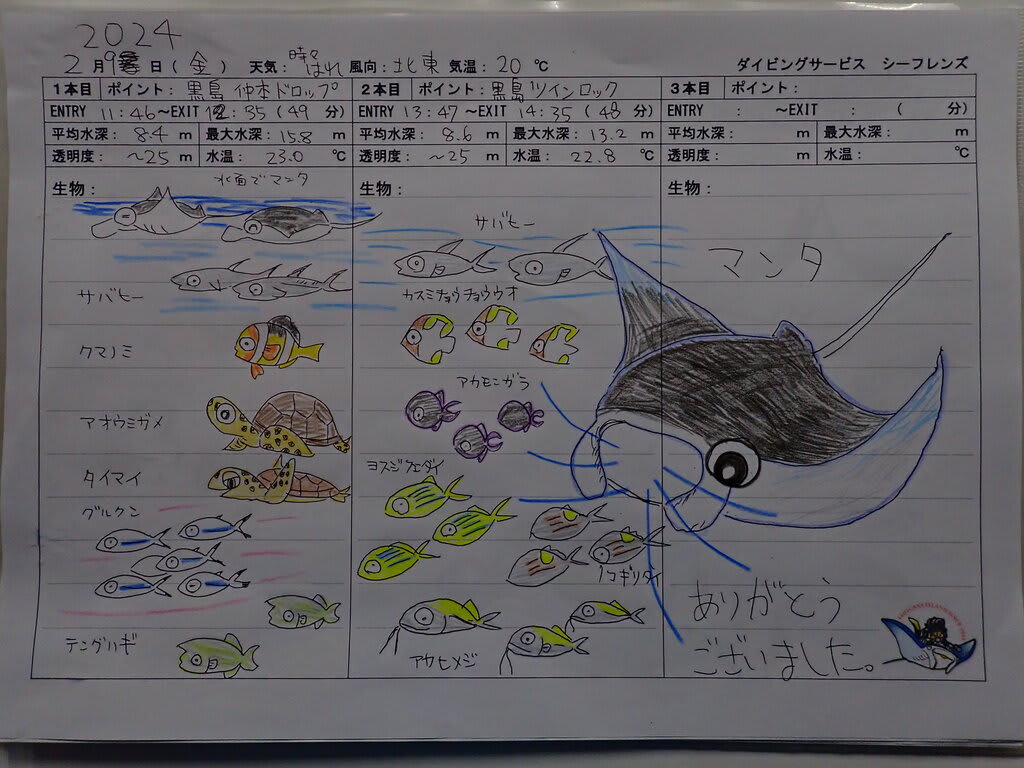 2024
2月9日(金) 天気:時々はれ 風向:北東 気温:20℃ ダイビングサービス シーフレンズ
1本目 ポイント:黒島 仲本ドロップ 2本目 ポイント:黒島ツインロック 3本目 ポイント:
ENTRY 11:46~EXIT 12:35(49 分) ENTRY 13:47~EXIT 14:35(48 分) ENTRY : ~EXIT : ( 分)
平均水深: 8.4 m 最大水深: 15.8 m 平均水深: 8.6 m 最大水深: 13.2 m 平均水深: m 最大水深: m
透明度: ~25 m 水温: 23.0 ℃ 透明度: ~25 m 水温: 22.8 ℃ 透明度: m 水温: ℃
生物:
水面でマンタ
サバヒー
クマノミ
アオウミガメ
タイマイ
グルクン
テングハギ
生物:
サバヒー
カスミチョウチョウウオ
アカモンガラ
ヨスジフエダイ
ノコギリダイ
アカヒメジ
生物:
マンタ
ありがとう
ございました。